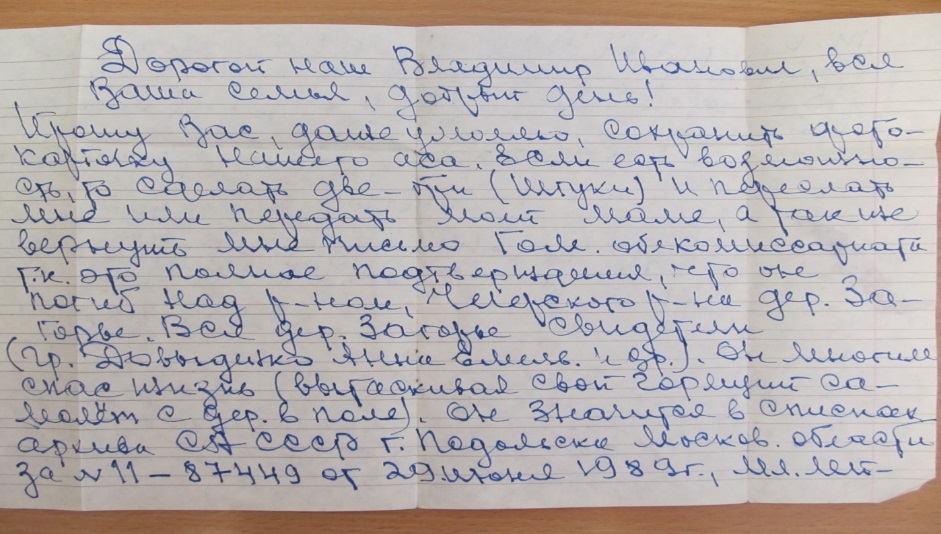 Дорогой наш Владимир Иванович, вся
Ваша семья, добрый день!
Прошу Вас, даже умоляю, сохранить фото-
карточку нашего аса. Если есть возможно-
сть, то сделать две-три (штуки) и переслать
мне или передать моей маме, а также
вернуть мне письмо Гом. облкомиссариата
т.к. это полное подтверждения, что он
погиб над р-ном, Чечерского р-на дер. За-
горье. Вся дер. Загорье свидетели
(гр. Довыденко Анна Емельв. и др.). Он многим
спас жизнь (вытаскивая свой горящий са-
молёт с дер. в поле). Он значится в списках
архива СА СССР г. Подольска Москов. области
за №11-87449 от 29 июня 1989г., мл. лей-